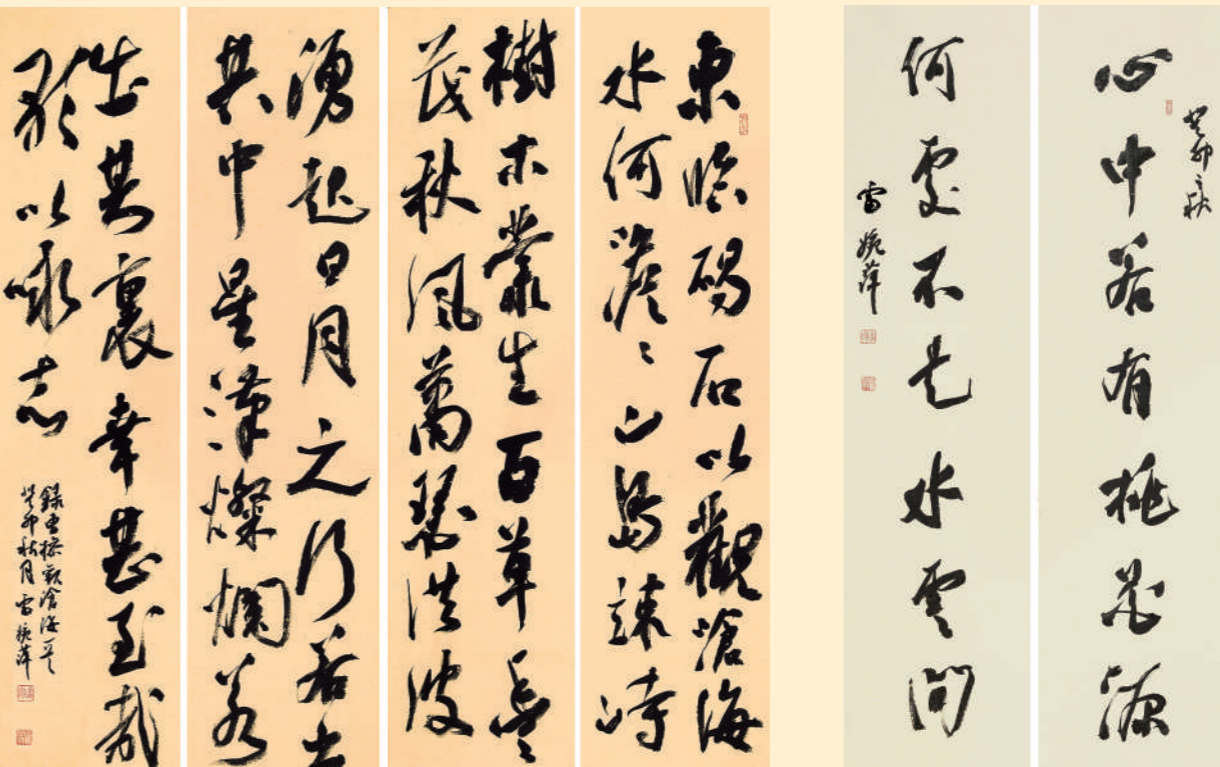 癸卯之秋
心中若有桃花源
何處不是水雲間
雷婉萍
東臨碣石以觀滄海
水何澹々山島竦峙
樹木叢生百草豐
茂秋風蕭瑟洪波
湧起日月之行若出
其中星漢燦爛若
出其裏幸甚至哉
歌以詠志
録曹操觀滄海
癸卯秋月 雷婉萍